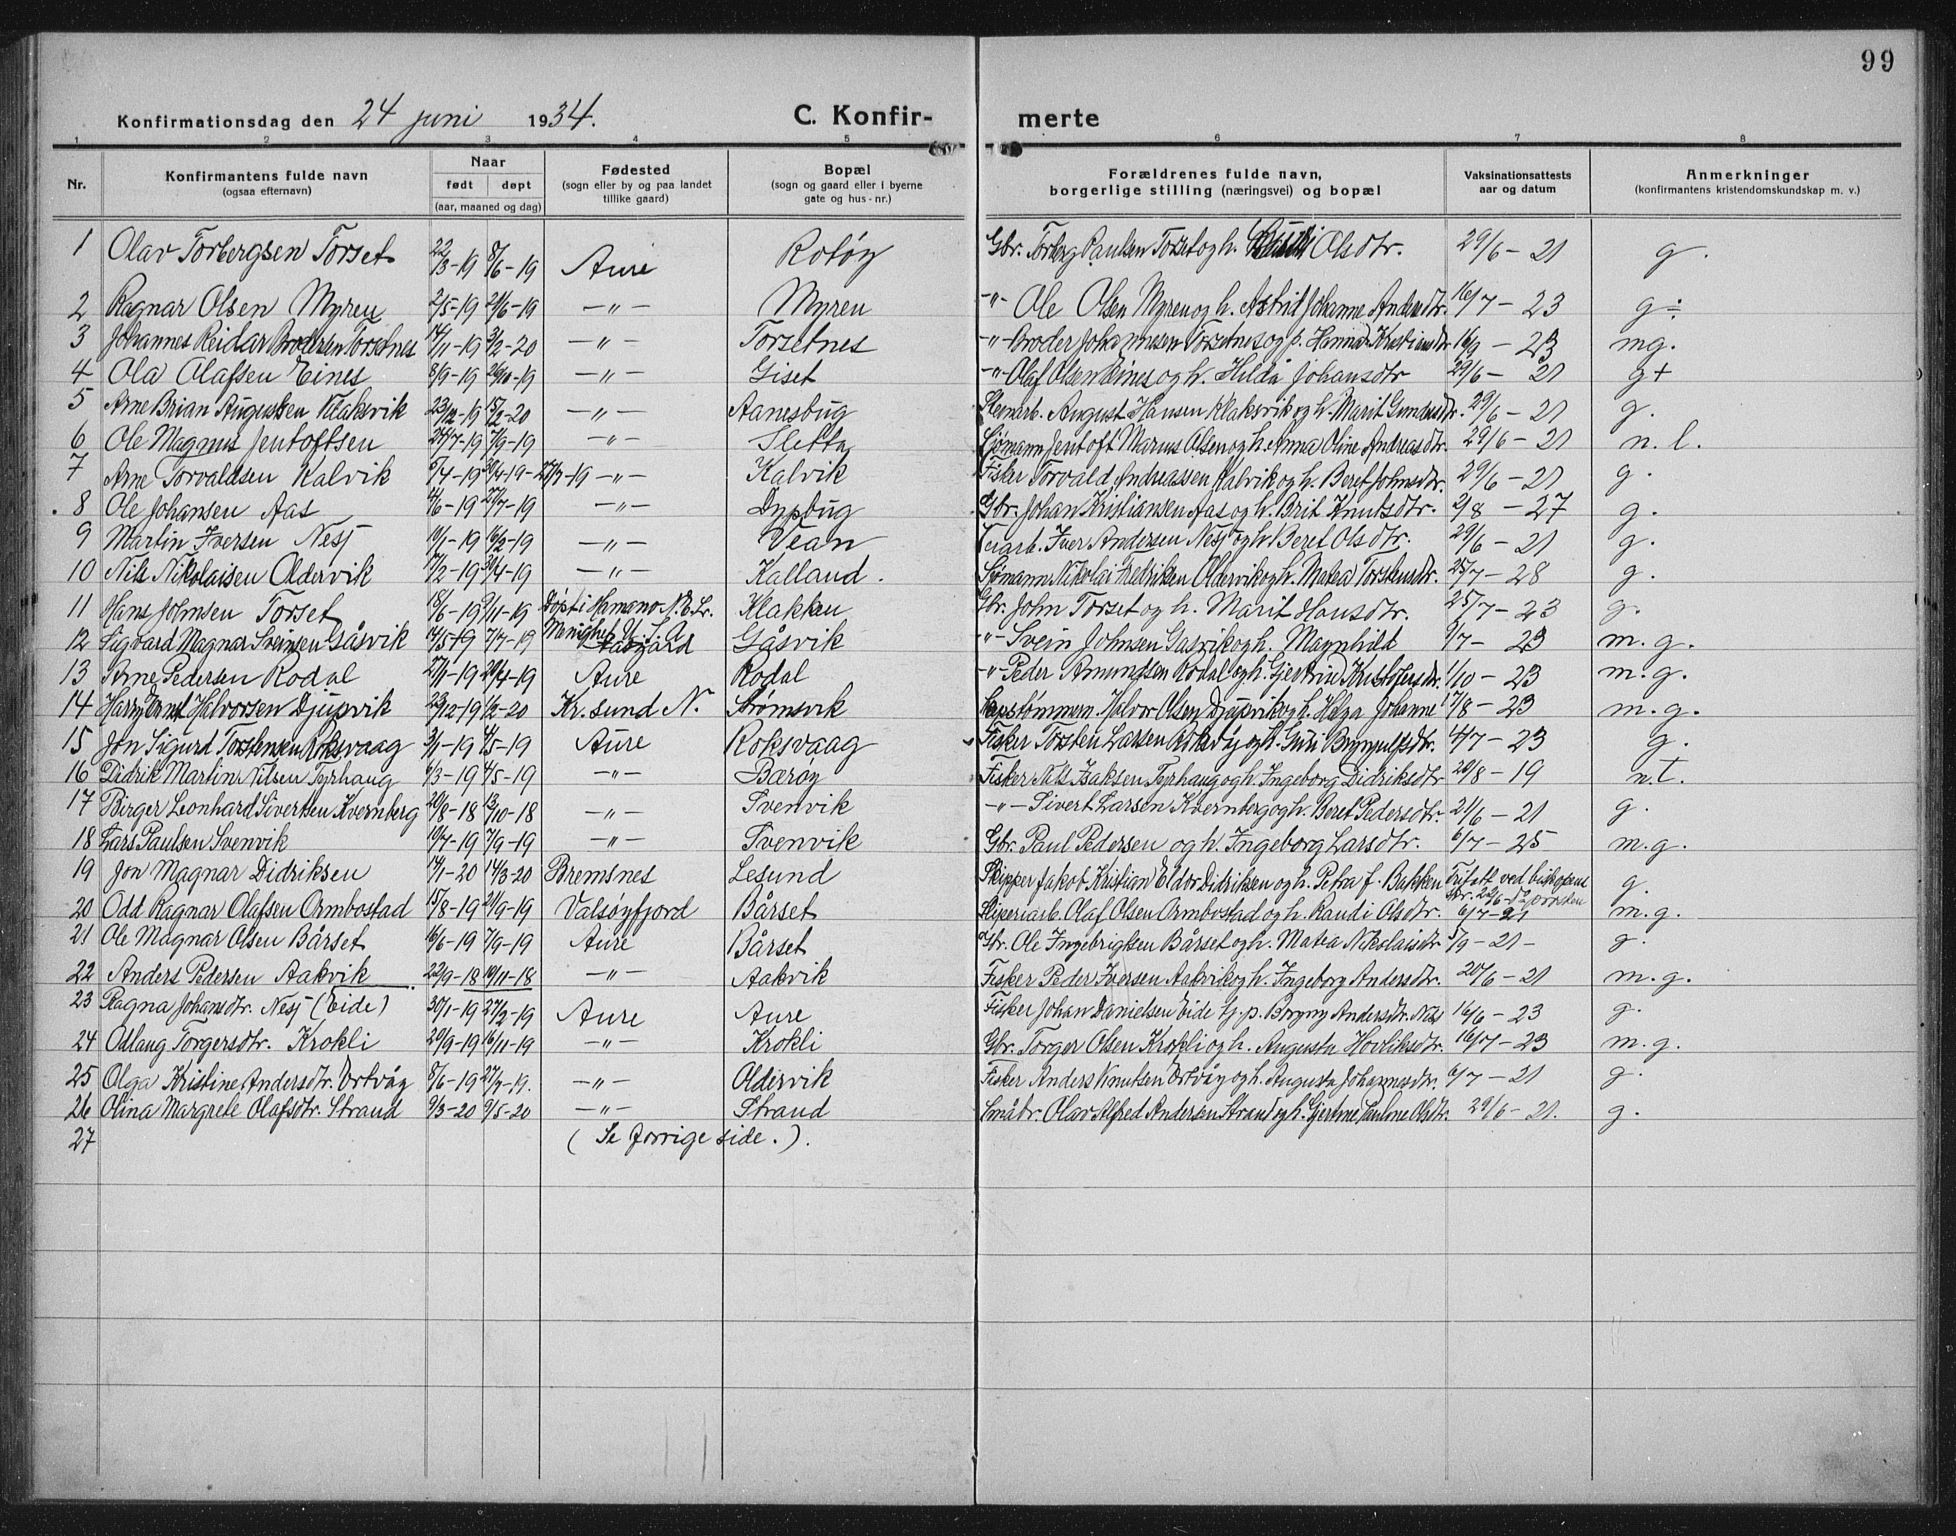 99
Konfirmationsdag den 24 juni 1934. C. Konfir- merte
1 2 3 4 5 6 7 8
Nr. Konfirmantens fulde navn (ogsaa efternavn) Naar født døpt (aar, maaned og dag) Fødested (sogn eller by og paa landet tillike gaard) Bopæl (sogn og gaard eller i byerne gate og hus-nr.) Forældrenes fulde navn, borgerlige stilling (næringsvei) og bopæl Vaksinationsattests aar og datum Anmerkninger (konfirmantens kristendomskundskap m. v.)
1 Olav Torbergsen Torset 22/3-19 8/6-19 Aure Rotøy Gbr. Torberg Paulsen Torset og h. Olsdtr. 29/6-21 g.
2 Ragnar Olsen Myren 2/5-19 29/6-19 -"- Myren -"- Ole Olsen Myren og h. Astrid Johanne Andersdtr. 16/7-23 g÷
3 Johannes Reidar Brodersen Torsetnes 14/11-19 3/2-20 -"- Torsetnes -"- Broder Johannesen Torsetnes og h. Hanna Kristiansdtr 16/9-23 mg.
4 Ola Olafsen Eines 8/9-19 26/10-19 -"- Giset -"- Olaf Olsen Eines og h. Hilda Johansdtr 29/6-21 g+
5 Arne Brian Augustsen Klaksvik 23/12-19 15/2-20 -"- Aanesbug Stenarb. August Hansen Klaksvik og h. Marit Gundersdtr. 29/6-21 g.
6 Ole Magnus Jentoftsen 24/7-19 7/9-19 -"- Sletta Sjømann Jentoft Marius Olsen og h. Anna Oline Andreasdtr. 29/6-21 n.l.
7 Arne Torvaldsen Kalvik 5/4-19 30/4-19 - 27/7-19 -"- Kalvik Fisker Torvald Andreassen Kalvik og h. Beret Johnsdtr. 29/6-21 g.
8 Ole Johansen Aas 4/6-19 27/7-19 -"- Dypbug Gbr. Johan Kristiansen Aas og h. Brit Knutsdtr. 2/8-27 g.
9 Martin Iversen Nesj 10/1-19 16/2-19 -"- Vean Veiarb. Iver Andersen Nesj og h. Beret Olsdtr. 29/6-21 g.
10 Nils Nikolaisen Oldervik 17/2-19 30/4-19 -"- Kalland. Sjømann Nikolai Fredriksen Oldervik og h. Matea Torstensdtr. 25/7-28 g.
11 Hans Johnsen Torset 18/6-19 9/11-19 Døpt i N.E.Lr. Klakken Gbr. John Torset og h. Marit Hansdtr. 25/7-23 g.
12 Sigvard Magnar Sveinsen Gåsvik 14/5-19 7/7-19 Menighet U.S.A Gåsvik -"- Svein Johnsen Gåsvik og h. Magnhild 9/7-23 m.g.
13 Arne Pedersen Rodal 27/1-19 20/4-19 Aure Rodal -"- Peder Amundsen Rodal og h. Gjertrud Kristofersdtr. 1/10-23 m.g.
14 Harry Ernst Halvorsen Djupvik 23/12-19 1/2-20 Kr.sund N. Strømsvik Halvor Olsen Djupvik og h. Helga Johanne 17/8-23 m.g.
15 Jon Sigurd Torstensen Roksvaag 3/1-19 4/5-19 Aure Roksvaag Fisker Torsten Larsen Roksvåg og h. Guri Brynjulfsdtr. 4/7-23 g.
16 Didrik Martin Nilsen Tyrhaug 4/3-19 4/5-19 -"- Bærøy Fisker Nils Isaksen Tyrhaug og h. Ingeborg Didriksdtr 20/8-19 n.t.
17 Birger Leonhard Sivertsen Kvernberg 20/8-18 13/10-18 -"- Svenvik -"- Sivert Larsen Kvernberg og h. Beret Pedersdtr. 21/6-21 g.
18 Lars Paulsen Svenvik 10/7-19 7/9-19 -"- Svenvik Gbr. Paul Pedersen og h. Ingeborg Larsdtr. 6/7-25 m.g.
19 Jon Magnar Didriksen 14/1-20 14/3-20 Bremsnes Lesund Skipper Jakob Kristian Eldor Didriksen og h. Petra f. Bakken Fritatt ved biskopens g.
20 Odd Ragnar Olafsen Ormbostad 15/8-19 21/9-19 Valsøyfjord Bårset Sliperiarb. Olaf Olsen Ormbostad og h. Randi Olsdtr. 6/7-21 m.g.
21 Ole Magnar Olsen Bårset 16/6-19 7/9-19 Aure Bårset Gbr. Ole Ingebrigtsen Bårset og h. Matea Nikolaisdtr 5/9-21- g.
22 Anders Pedersen Aakvik 22/9-18 10/11-18 -"- Aakvik Fisker Peder Iversen Aakvik og h. Ingeborg Andersdtr. 20/6-21 m.g.
23 Ragna Johansdtr. Nesj (Eide) 30/1-19 27/2-19 Aure Aure Fisker Johan Danielsen Eide og p. Bryny Andersdtr. Nesj 16/6-23 g.
24 Odlaug Torgersdtr. Krokli 20/9-19 16/11-19 -"- Krokli Gbr. Torger Olsen Krokli og h. Augusta Hovliksdtr. 16/7-23 m.g.
25 Olga Kristine Andersdtr. Ertvåg 8/6-19 27/7-19. -"- Oldervik Fisker Anders Knutsen Ertvåg og h. Augusta Johannesdtr. 6/7-21 g.
26 Olina Margrete Olafsdtr. Strand 9/3-20 9/5-20 -"- Strand Småbr. Olav Alfred Andersen Strand og h. Gjertine Pauline Olsdtr. 29/6-21. g.
27 (Se forrige side.).